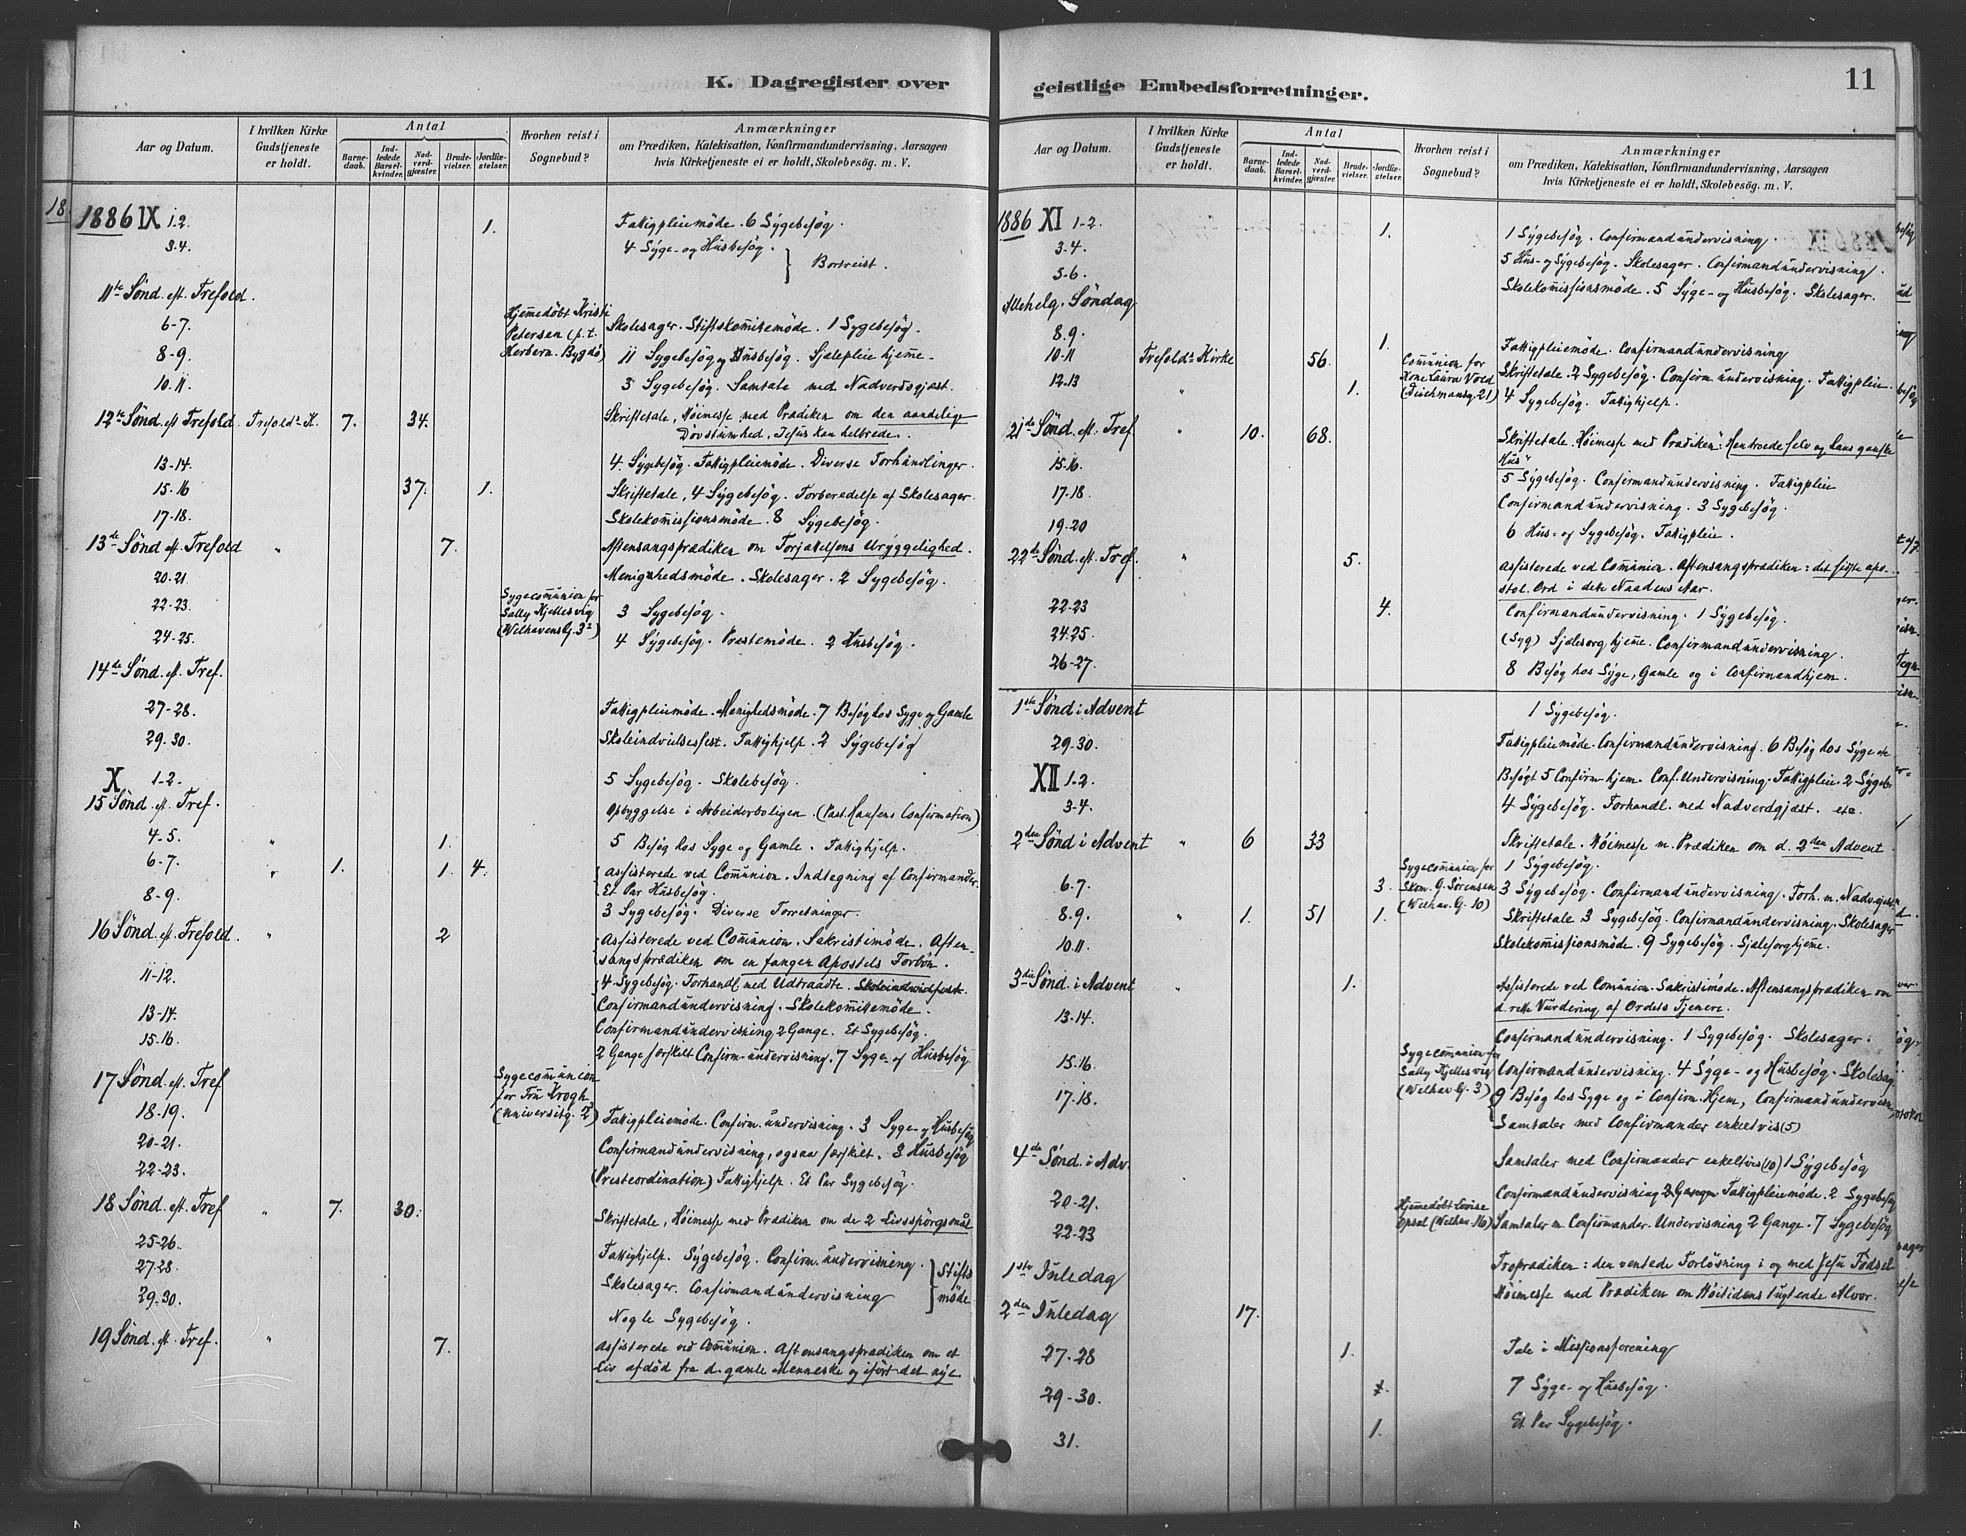 K. Dagregister over
Aar og Datum.
I hvilken Kirke Gudstjeneste er holdt.
Antal
Barnedaab.
Indledede Barselkvinder.
Nadverdgjæster.
Brudevielser.
Jordfæstelser.
Hvorhen reist i Sognebud?
Anmærkninger
om Prædiken, Katekisation, Konfirmandundervisning, Aarsagen
hvis Kirketjeneste ei er holdt, Skolebesøg. m. V.
18
1886 IX 1-2. 1. Fattigpleiemöde. 6 Sygebesög.
3-4. 4 Syge- og Husbesög.
Bortreist.
11te Sönd. eft. Trefold.
Hjemmedöbt Kristi
Petersen (p. t.
Herbern. Bygdö)
6-7. Skolesager. Stiftskomitemöde. 1 Sygebesög.
8-9. 11 Sygebesög og Husbesög. Sjælepleie hjemme.
10-11. 3 Sygebesög. Samtale med Nadverdsgjæst.
12te Sönd. eft Trefold. Trefold.s K. 7. 34. Skriftetale, Höimesse med Prædiken om den aandelige
Dövstumhed, Jesus kan helbrede.
13-14. 4. Sygebesög. Fattigpleiemöde. Diverse Forhandlinger.
15-16 37. 1. Skriftetale, 4 Sygebesög. Forberedelse af Skolesager.
17-18. Skolekommissionsmöde. 8 Sygebesög.
13de Sönd eft. Trefold " 7. Aftensangsprædiken om Forjættelsens Uryggelighed.
20-21. Menighedsmöde. Skolesager. 2 Sygebesög.
Sygecommunion for
Sally Kjellesvig
(Welhavens G. 3²)
22-23. 3 Sygebesög.
24-25. 4 Sygebesög. Prestemöde. 2 Husbesög.
14de Sönd. eft. Tref.
27-28. Fattigpleiemöde. Menighedsmöde. 7 Besög hos Syge og Gamle
29.30. Skoleindvielsesfest. Fattighjelp. 2 Sygebesög
X 1-2. 5 Sygebesög. Skolebesög.
15 Sönd. eft. Tref. Opbyggelse i Arbeiderboligen. (Past. Hansens Confirmation)
4-5. " 1. 5 Besög hos Syge og Gamle. Fattighjelp.
6-7. " 1. 1. 4. Assisterede ved Communion. Indtegning af Confirmander.
Et Par Husbesög.
8-9. 3 Sygebesög. Diverse Forretninger.
16 Sönd. eft. Trefold. " 2 Assisterede ved Communion. Sakristimöde. Aften-
sangsprædiken om en fangen Apostels Forbön.
11-12. 4 Sygebesög. Forhandl. med Udtraadte. Skoleindvidfest.
13-14. Confirmandundervisning. Skolekomitemöde.
15-16. Confirmandundervisning 2 Gange. Et Sygebesög.
2 Gange særskilt Confirm. undervisning. 7 Syge- og Husbesög.
17 Sönd. eft. Tref
Sygecommunion
for Fru Krogh
(Universitg. 2)
18-19. Fattigpleiemöde. Confirm. undervisning. 3 Syge- og Husbesög
20-21. Confirmandundervisning, ogsaa særskilt. 3 Husbesög
22-23. (Presteordination) Fattighjelp. Et Par Sygebesög.
18 Sönd. eft. Tref " 7. 30. Skriftetale, Höimesse med Prædiken om de 2 Livsspörgsmål
25-26. Fattighjelp. Sygebesög. Confirm. undervisning.
27-28. Skolesager. Confirmandundervisning
Stifts
möde
29-30. Nogle Sygebesög.
19 Sönd. eft. Tref. " 7. Assisterede ved Communion. Aftensangsprædiken om et
Liv afdöd fra d. gamle Menneske og ifört det nye.
geistlige Embedsforretninger.
11
Aar og Datum.
I hvilken Kirke Gudstjeneste er holdt.
Antal
Barnedaab.
Indledede Barselkvinder.
Nadverdgjæster.
Brudevielser.
Jordfæstelser.
Hvorhen reist i Sognebud?
Anmærkninger
om Prædiken, Katekisation, Konfirmandundervisning, Aarsagen
hvis Kirketjeneste ei er holdt, Skolebesøg. m. V.
1886 XI 1-2. 1. 1 Sygebesög. Confirmandundervisning.
3-4. 5 Hus- og Sygebesög. Skolesager. Confirmandundervisning.
5-6. Skolekommissionsmöde. 5 Syge- og Husbesög. Skolesager.
Allehelg. Söndag
8.9. 1. Fattigpleiemöde. Confirmandundervisning
10-11 Trefold.s Kirke 56. Skriftetale. 2 Sygebesög. Confirm. undervisning. Fattigpleie.
Communion for
Kone Laura Vold
(Deichmansg. 21)
12.13 " 1. 4 Sygebesög. Fattighjelp.
21de Sönd. eft. Tref " 10. 68. Skriftetale. Höimesse med Prædiken: Han troede selv og hans ganske
Hus"
15-16. 5 Sygebesög. Confirmandundervisning. Fattigpleie
17-18. Confirmandundervisning. 3 Sygebesög.
19-20 6 Hus- og Sygebesög. Fattigpleie.
22de Sönd. eft. Tref. " 5. Assisterede ved Communion. Aftensangsprædiken: det sidste apo-
stol. Ord i dette Naadens Aar.
22-23 4. Confirmandundervisning. 1 Sygebesög.
24.25. (Syg) Sjælesorg hjemme. Confirmandundervisning.
26-27. 8 Besög hos Syge, Gamle og i Confirmandhjem.
1ste Sönd i Advent 1 Sygebesög.
29-30. Fattigpleiemöde. Confirmandundervisning. 6 Besög hos Syge etc
XII 1-2. Besögt 5 Confirm. hjem. Conf. Undervisning. Fattigpleie. 2 Sygeb.
3-4. 4 Sygebesög. Forhandl. med Nadverdgjæst. etc.
2den Sönd i Advent " 6 33 Skriftetale. Höimesse m. Prædiken om d. 2den Advent.
1 Sygebesög.
Sygecommunion for
Skom. G. Sörensen
(Welhav. G. 10)
6-7. 3. 3 Sygebesög. Confirmandundervisning. Forh. m. Nadv.gjest.
8.9. " 1. 51 1. Skriftetale 3 Sygebesög. Confirmandundervisning. Skolesager
10.11. Skolekommissionsmöde. 9 Sygebesög. Sjælesorg hjemme.
3die Sönd. i Advent " 1. Assisterede ved Communion. Sakristimöde. Aftensangsprædiken om
d. rette Vurdering af Ordets Tjenere.
13-14. Confirmandundervisning. 1 Sygebesög. Skolesager.
Sygecommunion for
Sally Kjellesvig
(Welhav. G. 3)
15-16. Confirmandundervisning. 4 Syge- og Husbesög. Skolesag
17-18. 9 Besög hos Syge og i Confirm. Hjem, Confirmandundervisn.
Samtaler med Confirmander enkeltvis (5)
4de Sönd. i Adv. Samtaler med Confirmander enkeltvis (10) 1 Sygebesög
20-21. Confirmandundervisning 2 Gange. Fattigpleiemöde. 2 Sygebesög
Hjemmedöbt Lovise
Opsal (Welhav. 16)
22-23 Samtaler m. Confirmander. Undervisning 2 Gange. 7 Sygebesög
1ste Juledag Froprædiken: den ventede Forlösning i og med Jesu Födsel
2den Juledag 17. Höimesse med Prædiken om Höitidens tugtende Alvor.
27-28 1. Tale i Missionsforening
29-30. 7 Syge- og Husbesög.
31. 1. Et Par Sygebesög.